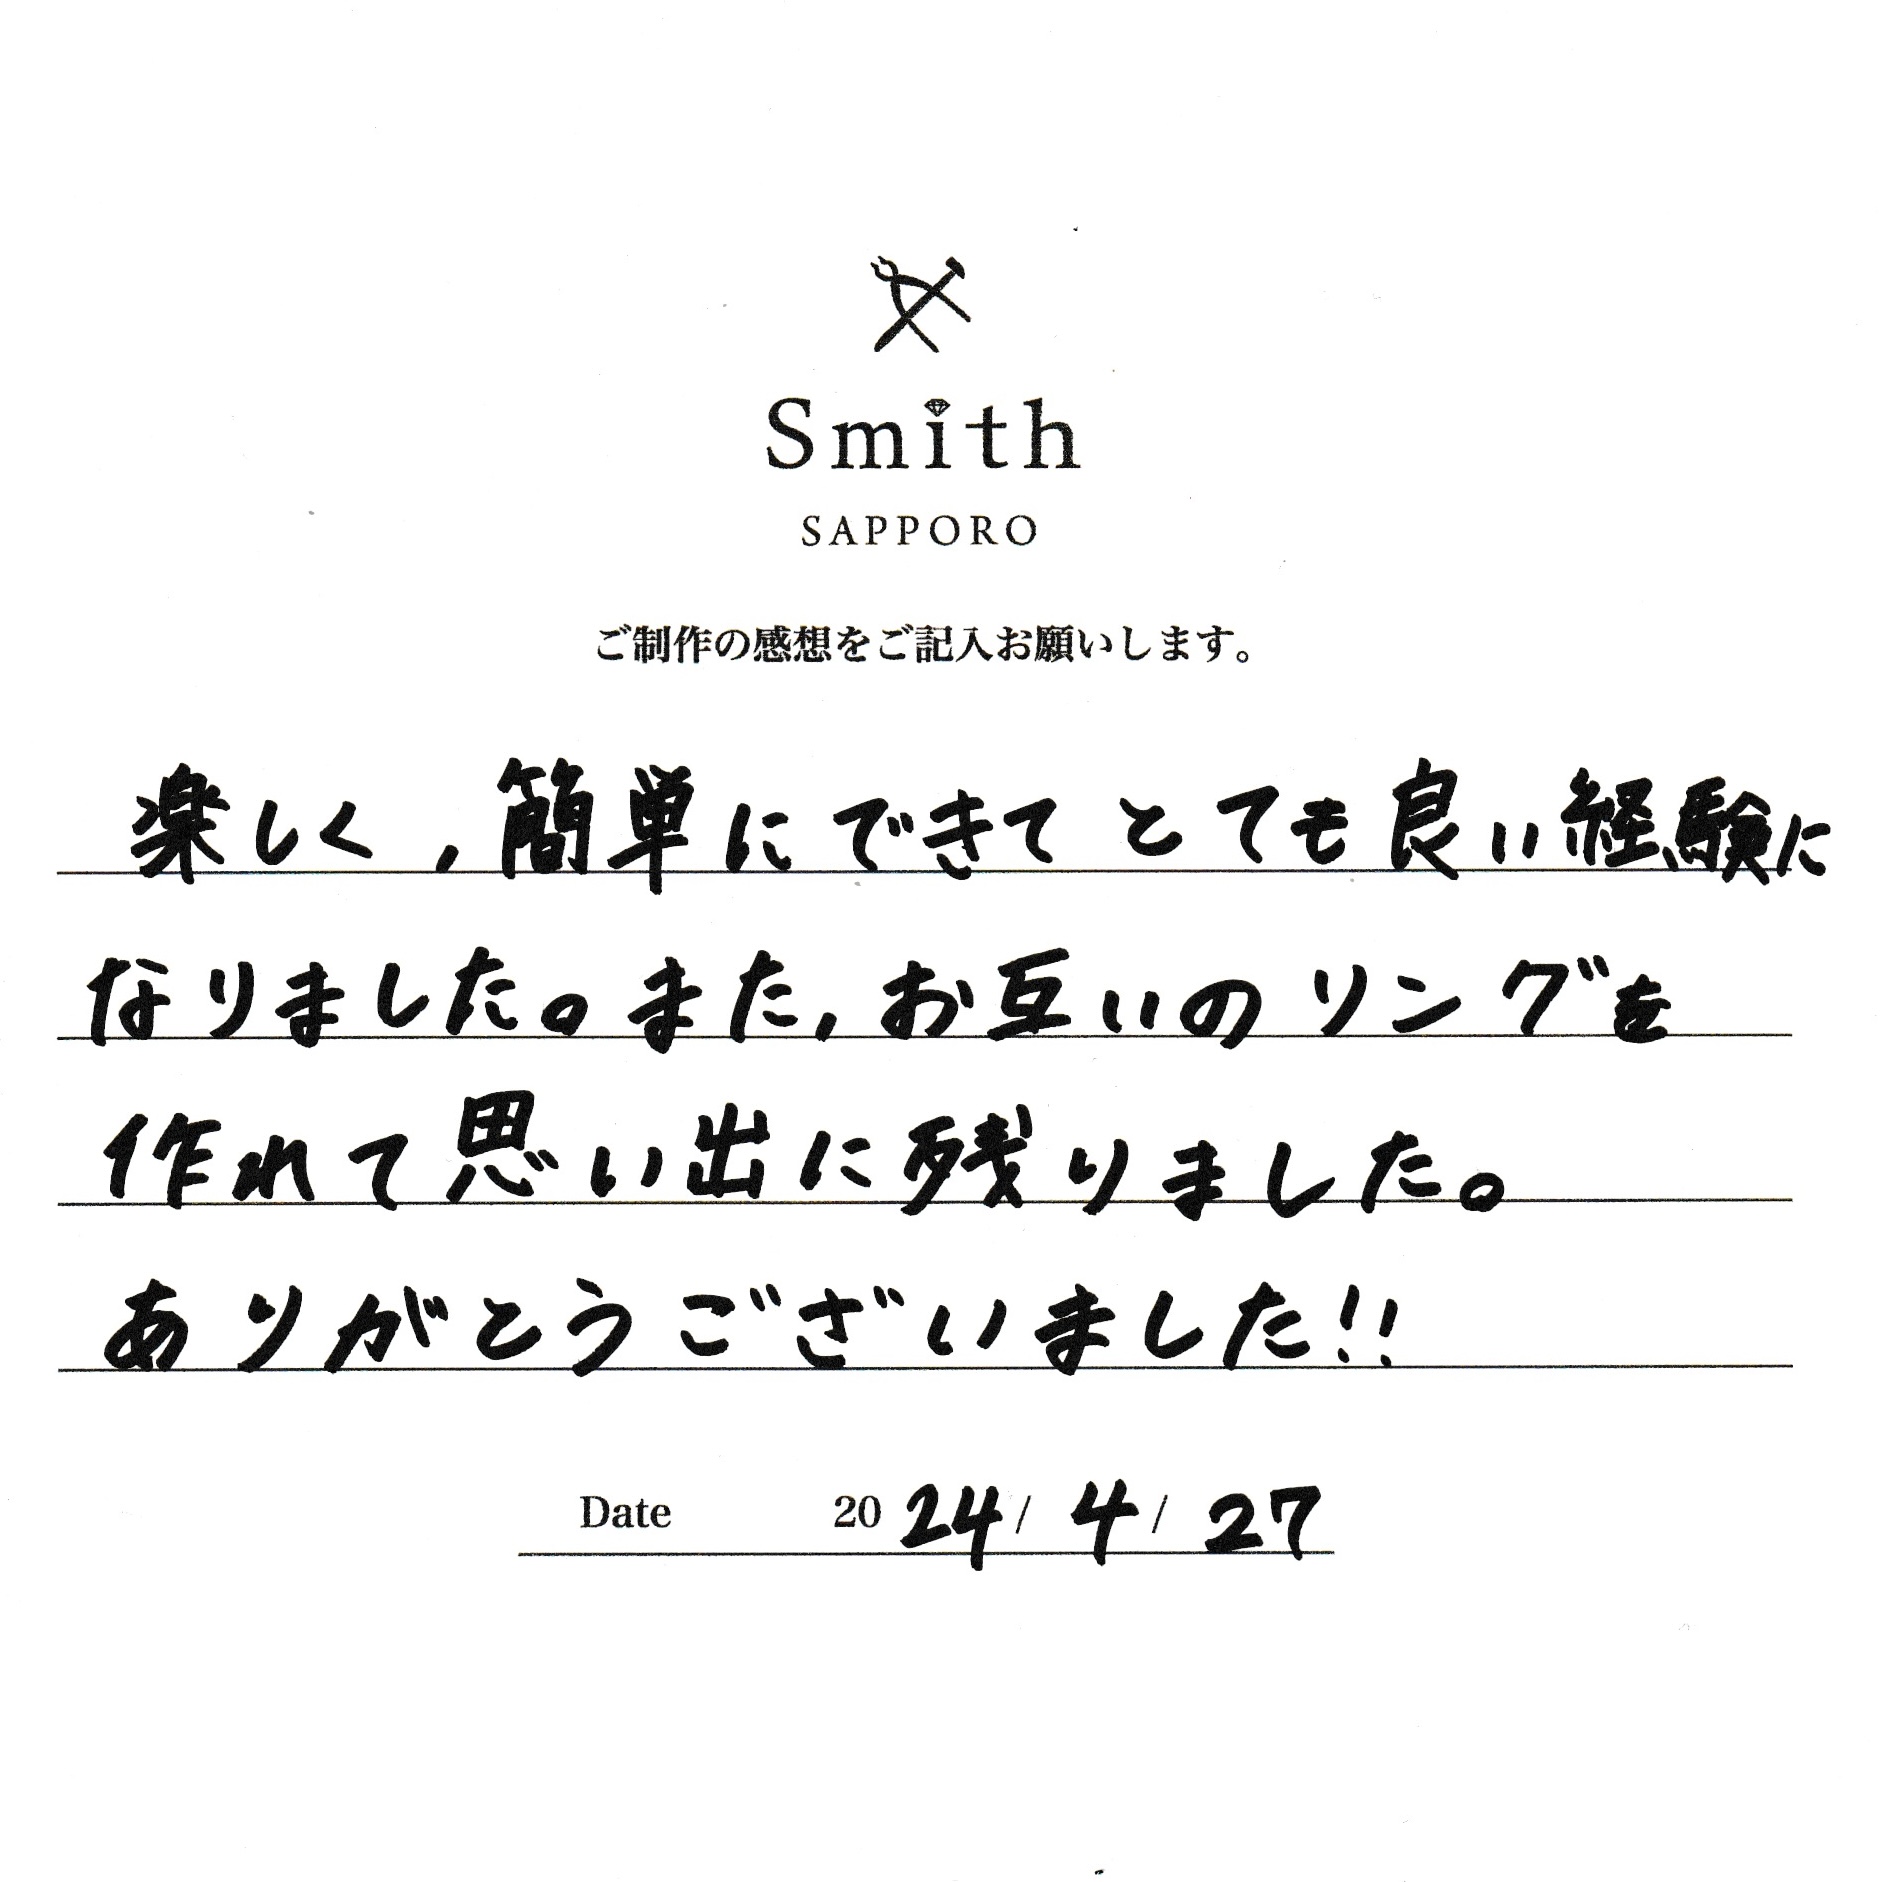 Smith
SAPPORO
ご制作の感想をご記入お願いします。
楽しく,簡単にできてとても良い経験に
なりました。また,お互いのリングを
作れて思い出に残りました。
ありがとうございました!!
Date 2024/4/27